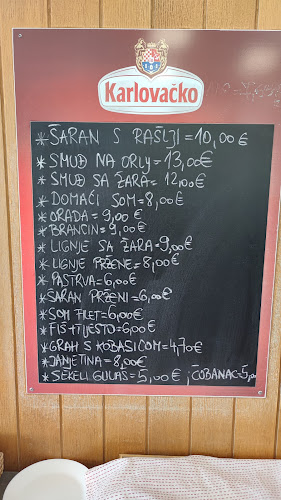 Karlovačko
* ŠARAN S RAŠLJI = 10,00€
* SMUĐ NA ORLY = 13,00€
* SMUĐ SA ŽARA = 12,00€
* DOMAĆI SOM = 8,00€
* ORADA = 9,00€
* BRANCIN = 9,00€
* LIGNJE SA ŽARA = 9,00€
* LIGNJE PRŽENE = 8,00€
* PASTRVA = 6,00€
* ŠARAN PRŽENI = 6,00€
* SOM FILET = 6,00€
* FIŠ + TIJESTO = 6,00€
* GRAH S KOBASICOM = 4,70€
* JANJETINA = 8,00€
* SEKELI GULAŠ = 5,00€ ; ČOBANAC = 5,00